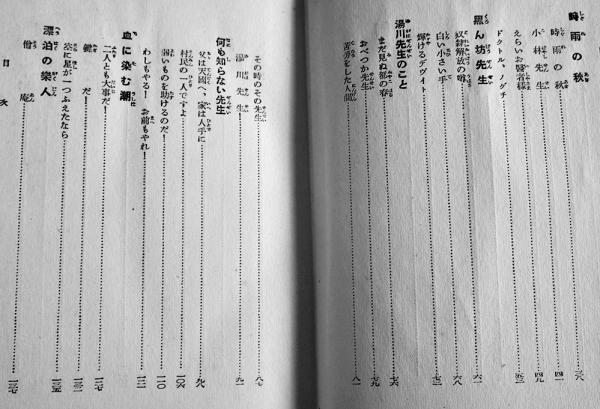 時雨の秋 三八
時雨の秋 四一
小林先生 四九
えらいお醫者樣 五三
ドクトル・ノグチ
黑ん坊先生 六一
奴隷解放の噂 六八
白い小さい手 七三
輝けるデヴィト
湯川先生のこと 七六
まだ見ぬ都の春 七九
おべつか先生 八一
苦勞をした人間
その時のその先生 八七
湯川先生 九一
何も知らない先生
父は天國へ、家は人手に 九九
村民の一人ですよ 一〇六
弱いものを助けるのだ! 一一〇
わしもやる! お前もやれ! 一二一
血に染む潮
二人とも大事だ! 一二七
鯱だ! 一三一
空に星が一つふえたなら 一三五
漂泊の樂人
僧庵 一三七
目次